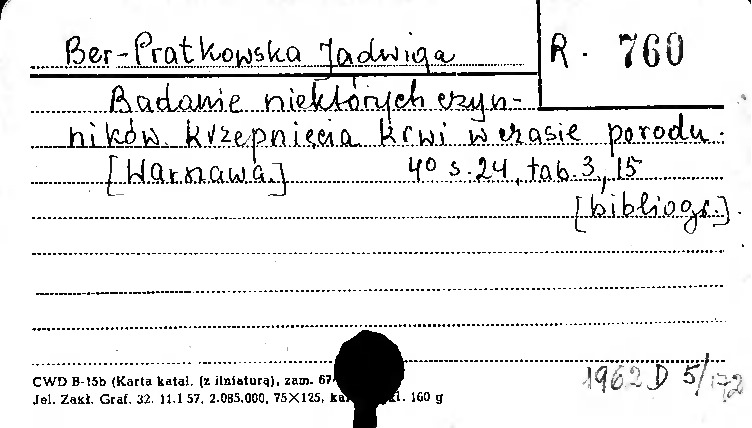 Ber-Pratkowska Jadwiga
R. 760
Badanie niektórych czyn-
ników krzepnięcia krwi w czasie porodu.
[Warszawa.] 4° s. 24, tab. 3, 15
[bibliogr.].
CWD B-15b (Karta katal. (z liniaturą), zam. 67
Jel. Zakł. Graf. 32. 11.1 57. 2.085.000, 75×125, 160 g
1962 D 5/172